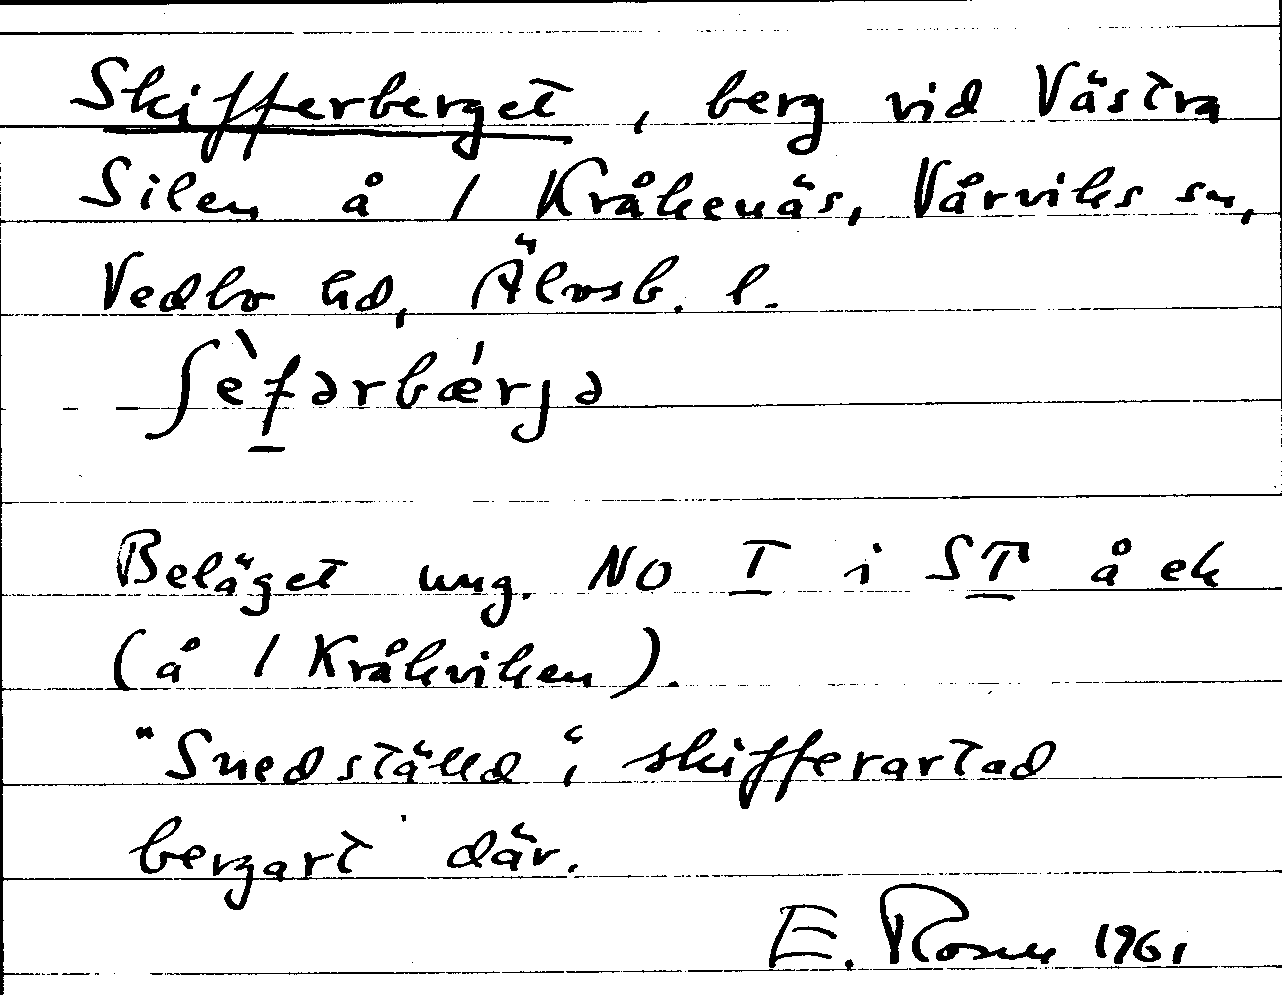 Skifferberget, berg vid Västra
Silen å 1 Kråkenäs, Vårviks sn,
Vedbo hd, Älvsb. l.
ʃèf̲ərbǽrjə
Beläget ung. NO I i ST å ek
(å 1 Kråkviken).
"Snedställd", skifferartad
bergart där.
E. Rosen 1961